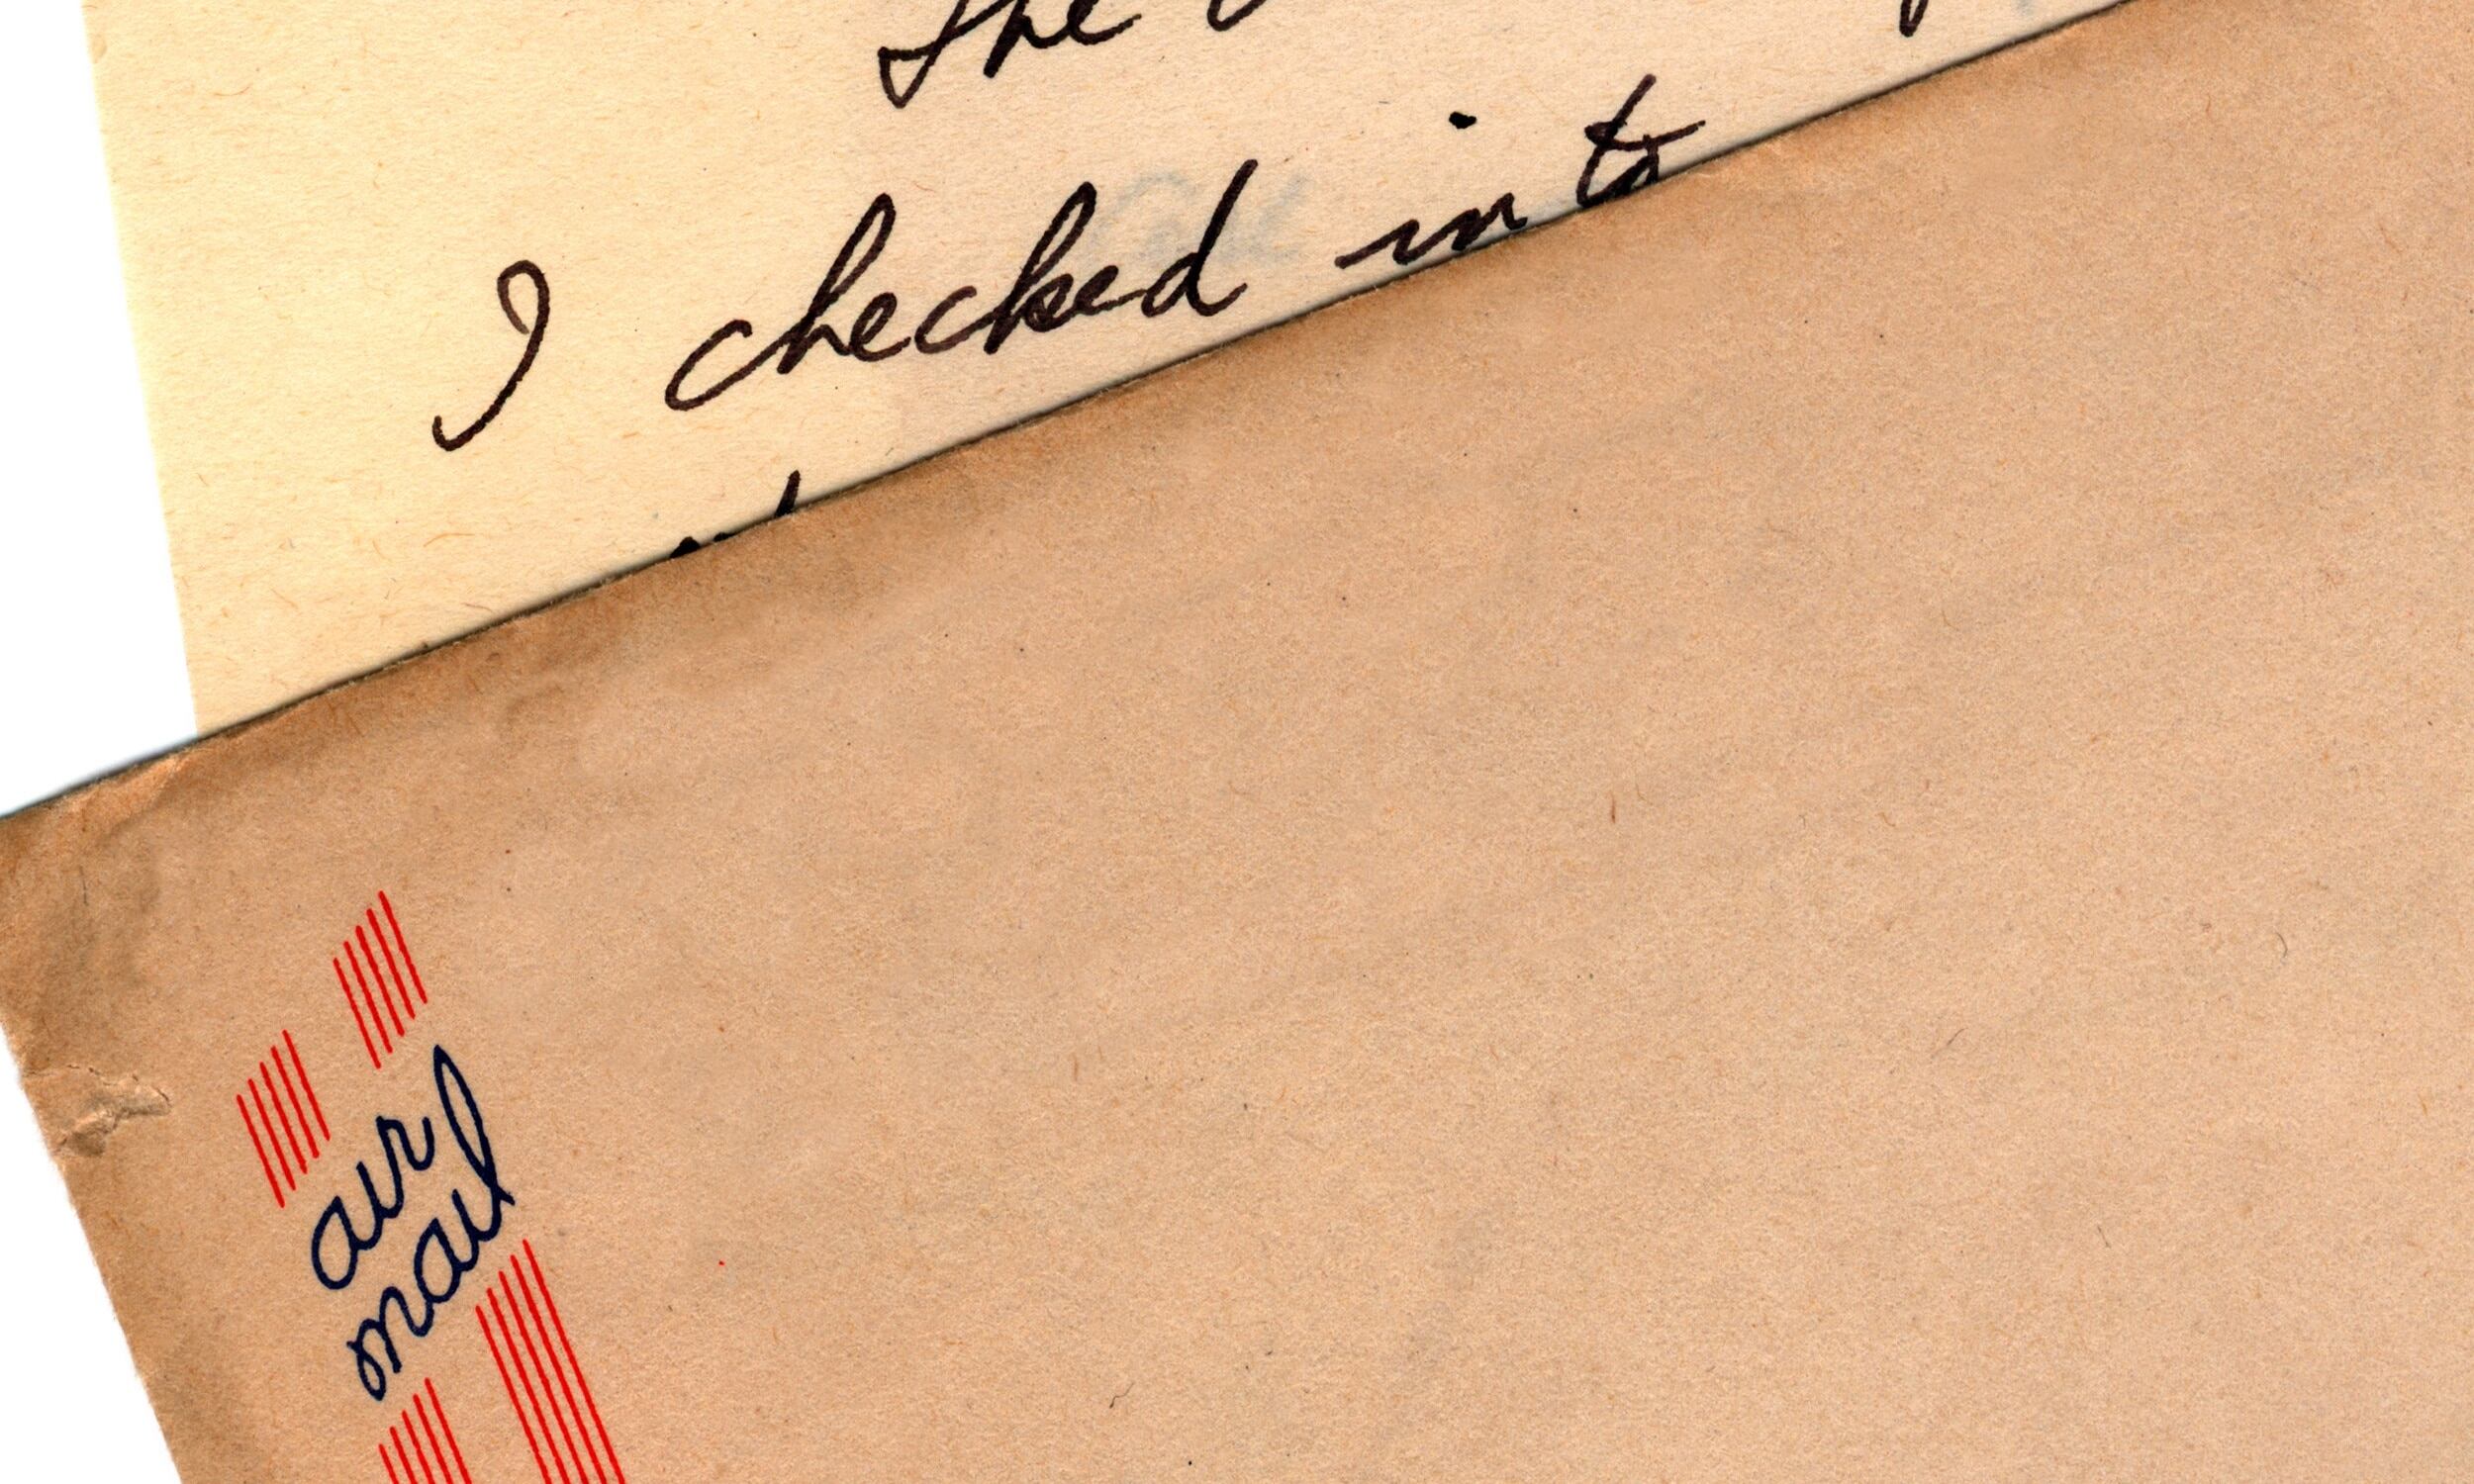 the
I checked in to
air
mail